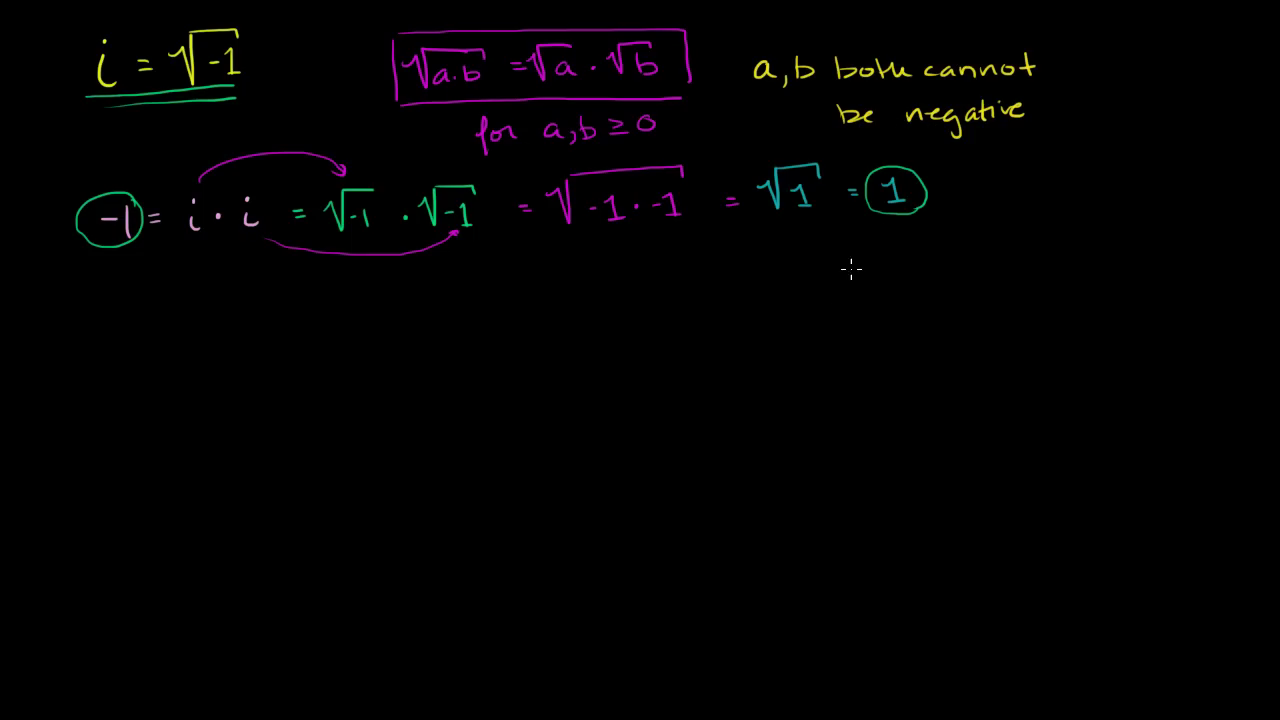 i = √-1
√a·b = √a · √b
for a,b ≥ 0
a,b both cannot
be negative
-1 = i · i = √-1 · √-1 = √-1 · -1 = √1 = 1